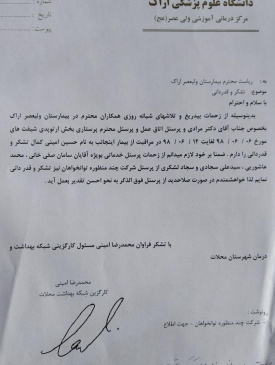 دانشگاه علوم پزشکی اراک
مرکز درمانی آموزشی ولی عصر(عج)
شماره :
تاریخ :
پیوست :
به : ریاست محترم بیمارستان ولیعصر اراک
موضوع : تشکر و قدردانی
با سلام و احترام
بدینوسیله از زحمات بیدریغ و تلاشهای شبانه روزی همکاران محترم در بیمارستان ولیعصر اراک
بخصوص جناب آقای دکتر مرادی و پرسنل اتاق عمل و پرسنل محترم پرستاری بخش ارتوپدی شیفت های
مورخ ۰۶ / ۰۶ / ۹۸ لغایت ۱۲ / ۰۶ / ۹۸ در مراقبت از بیمار اینجانب به نام حسین امینی کمال تشکر و
قدردانی را دارم. ضمنا بر خود لازم میدانم از زحمات پرسنل خدماتی بویژه آقایان سامان صفی خانی ، محمد
عاشوریی ، سیدعلی سجادی و سجاد لشکری از پرسنل شرکت چند منظوره توانخواهان نیز تشکر و قدر دانی
نمایم لذا خواهشمندم در صورت صلاحدید از پرسنل فوق الذکر به نحو احسن تقدیر بعمل آید.
با تشکر فراوان محمدرضا امینی مسئول کارگزینی شبکه بهداشت و
درمان شهرستان محلات
محمدرضا امینی
کارگزین شبکه بهداشت محلات
رونوشت :
- شرکت چند منظوره توانخواهان - جهت اطلاع